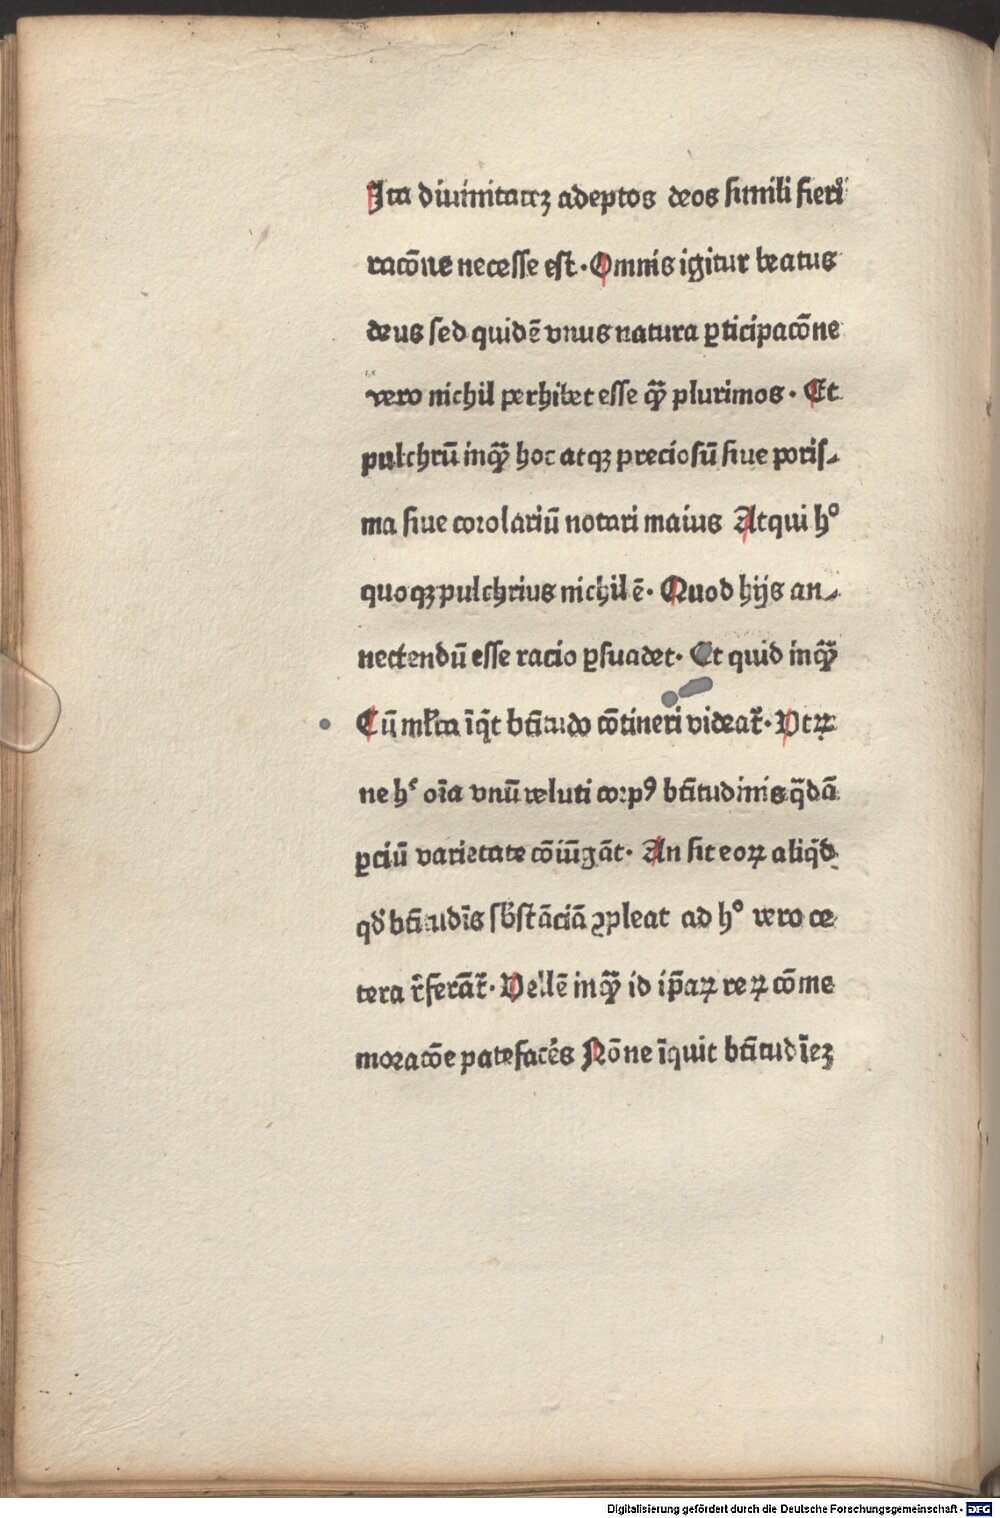 Ita diuinitatēz adeptos deos simili fieri
racōne necesse est · Omnis igitur beatus
deus sed quidē vnus natura ꝑticipacōne
vero nichil perhibet esse qꝫ̄ plurimos · Et
pulchrū inqꝫ̄ hoc atqꝫ preciosū siue poris⸗
ma siue corolariū notari maius Atqui hᵒ
quoqꝫ pulchrius nichil ē · Quod hijs an⸗
nectendū esse racio ꝑsuadet · Et quid inqꝫ̄
Cū ml̄ta īq̄t bt̄itudo cōtineri videat᷑ · Vtrꝝ
ne hᶜ oīa vnū veluti corpꝰ bt̄itudinis q̄dā
ꝑciū varietate cōiūgāt · An sit eoꝝ aliq̄d
qd̄ bt̄itudīs sb̄stāciā ꝯpleat ad hᵒ vero ce
tera r̄ferāt᷑ · Vellē inqꝫ̄ id ip̄aꝝ reꝝ cōme
moracōe patefacēs Nōne īquit bt̄itudīeꝫ
Digitalisierung gefördert durch die Deutsche Forschungsgemeinschaft - DFG